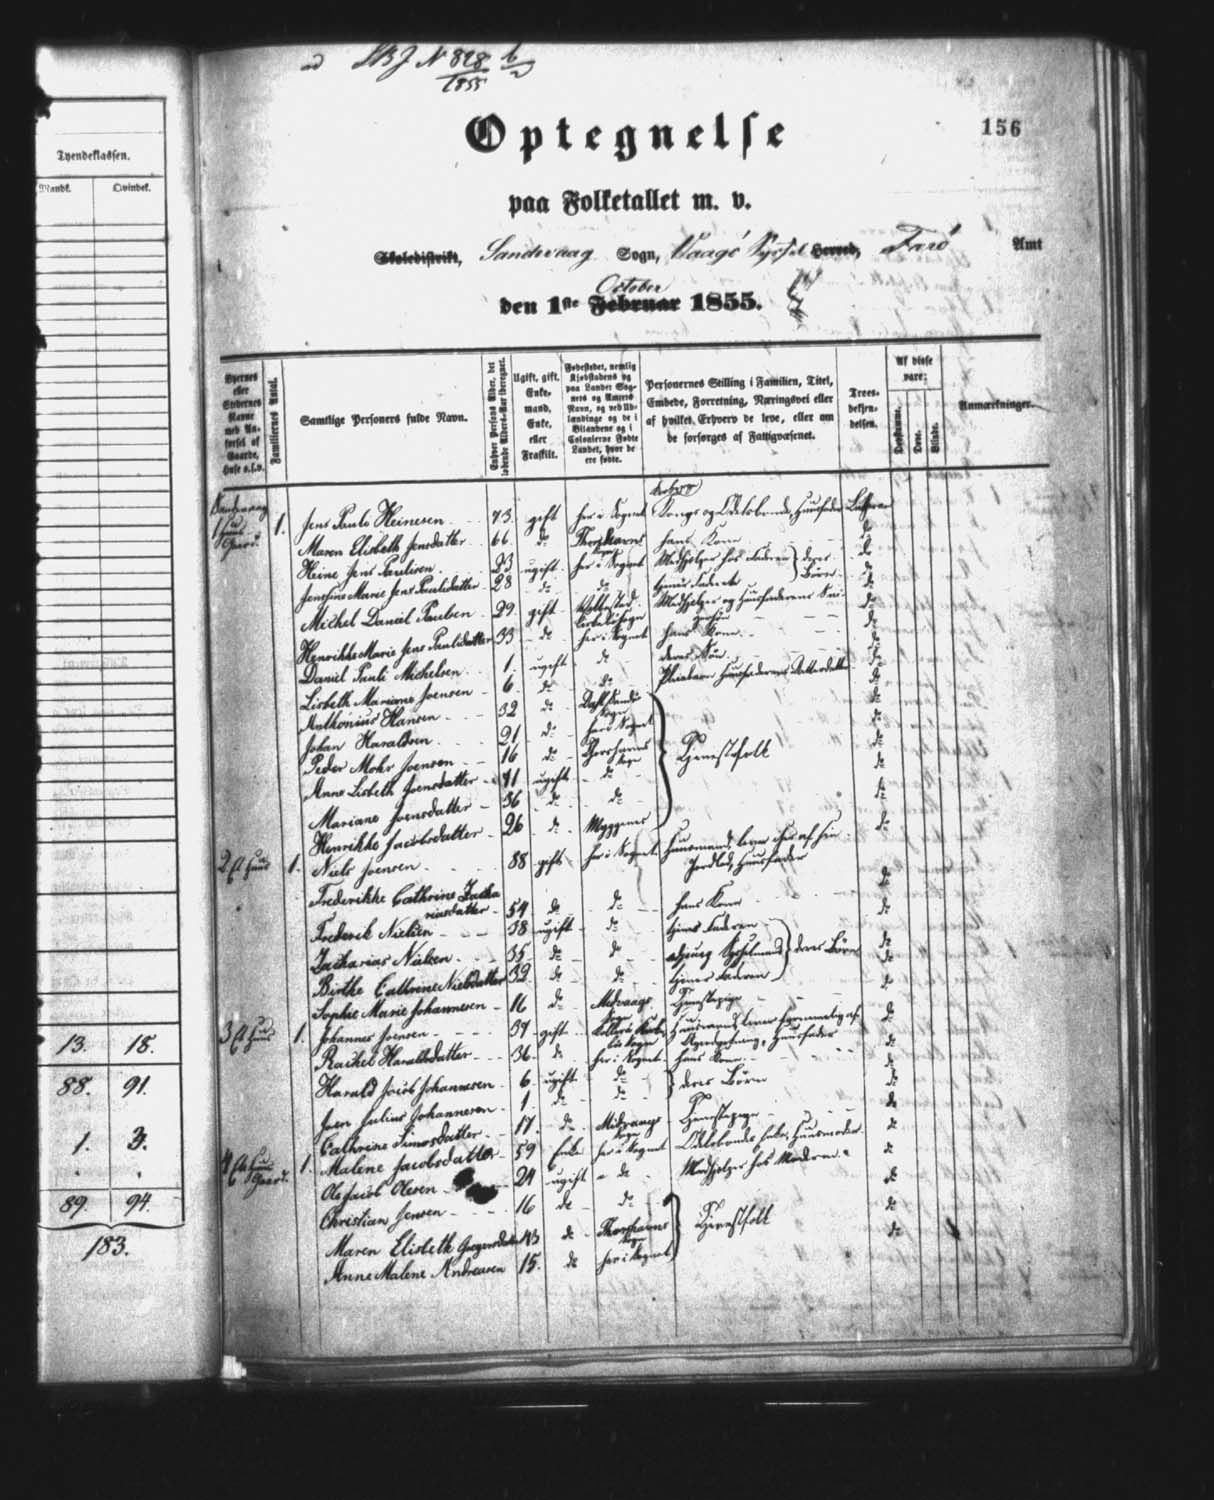 Tyendeklassen.
Mandk. Qvindek.
13. 18.
88. 91.
1. 3.
89. 94.
183.
N 828
1855
156
Optegnelse
paa Folketallet m. v.
Skoledistrikt, Sandevaag Sogn, Vaagø Syssel Herred, Færø Amt
October
den 1ste Februar 1855.
Byernes eller Stedernes Navne med Anførsel af Gaarde, Huse o.s.v.
Familiernes Antal.
Samtlige Personers fulde Navn.
Enhver Persons Alder, det løbende Alders-Aar iberegnet.
Ugift, gift, Enkemand, Enke, eller Fraskilt.
Fødestedet, nemlig Kjøbstadens og paa Landet Sognets og Amtets Navn, og ved Udlændinge og de i Bilandene og i Colonierne Fødte Landet, hvor de ere fødte.
Personernes Stilling i Familien, Titel, Embede, Forretning, Næringsvei eller af hvilket Erhverv de leve, eller om de forsørges af Fattigvæsenet.
Troesbekjendelsen.
Af disse vare:
Døvstumme.
Døve.
Blinde.
Anmærkninger.
Sandevaag
1 Huus Gaard. 1. Jens Pauli Heinesen 73. gift her i Sognet Kongs og Odelsbonde, Huusfader Luthersk
Maren Elisbeth Jensdatter 66 do Thorshavns Sogn hans Kone do
Heine Jens Paulisen 23 ugift her i Sognet Medhjelper hos Faderen deres Børn do
Jensine Marie Jens Paulidatter 28 do do tjener Faderen do
Michel Daniel Poulsen 29 gift Medhjelper og Huusfaderens do
Henrikke Marie Jens Paulidatter 33 do her i Sognet hans Kone do
Daniel Pauli Michelsen 1. ugift do deres Søn do
Lisbeth Mariane Joensen 6. do do Pleiebarn Huusfaderens Datterdatter do
Anthonius Hansen 32 do do
Johan Haraldsen 21 do her i Sognet do
Peder Mohr Joensen 16 do Thorshavns Sogn Tjenestefolk do
Anne Lisbeth Joensdatter 41 ugift do do
Mariane Joensdatter 36 do do do
Henrikke Jacobsdatter 26 do Myggenes do
2 Et Huus 1. Niels Joensen 88 gift her i Sognet Huusmand, lever af sin Jordlod, Huusfader do
Frederikke Cathrine Zachariasdatter 54 do do hans Kone do
Frederik Nielsen 38 ugift do tjener Faderen do
Zacharias Nielsen 35 do do deres Børn do
Birthe Cathrine Nielsdatter 32 do do tjener Faderen do
Sophie Marie Johannesen 16 do Midvaags Sogn Tjenestepige do
3 Et Huus 1. Johannes Joensen 37 gift Huusmand, lever af Huusfader do
Rachel Haraldsdatter 36 do her i Sognet hans Kone do
Harald Jacob Johannesen 6 ugift do deres Børn do
Joen Julius Johannesen 1. do do do
Cathrine Simonsdatter 17. do Midvaags Sogn Tjenestepige do
4 Et Huus Gaard. 1. Malene Jacobsdatter 59 Enke her i Sognet Odelsbonde, Huusmoder do
Ole Jacob Olesen 24 ugift do Medhjelper hos Moderen do
Christian Jensen 16 do do do
Maren Elisbeth 43 do Thorshavns Sogn Tjenestefolk do
Anne Malene Andreasen 15. do her i Sognet do